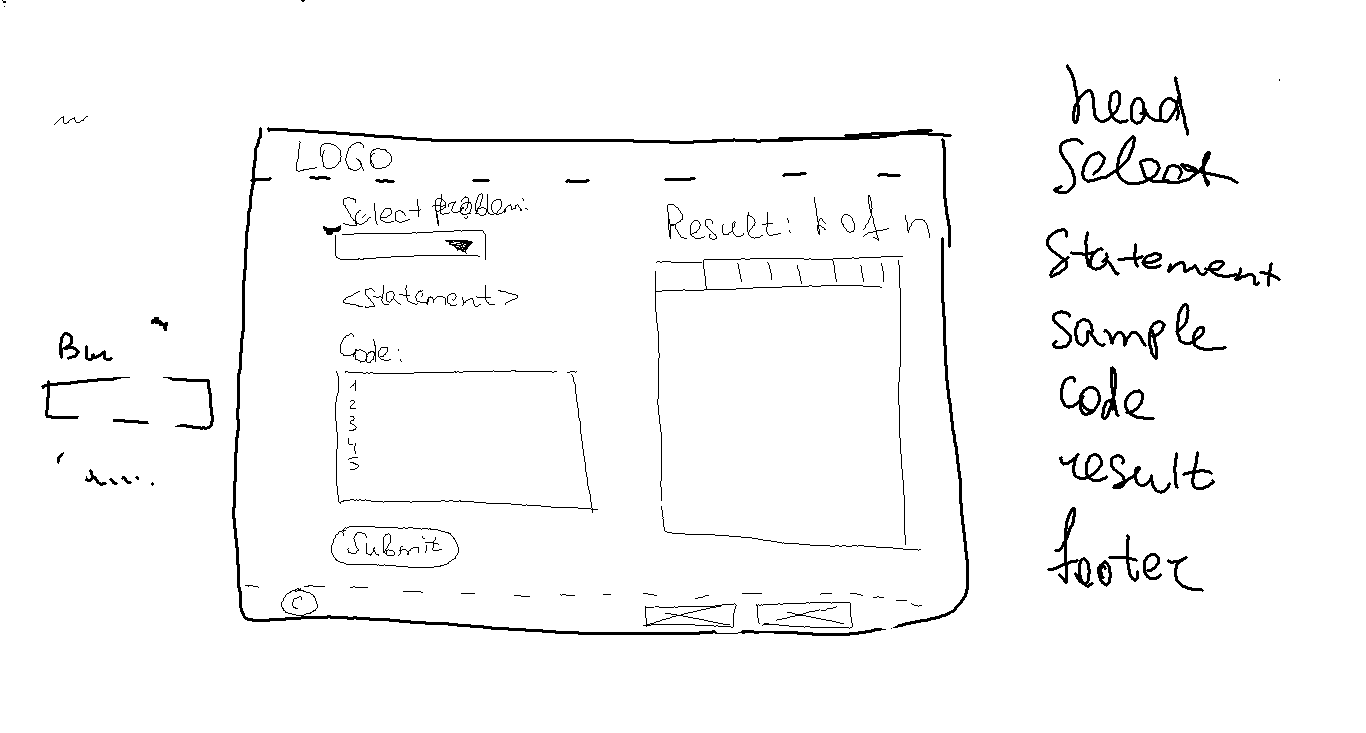 LOGO
Select problem:
<statement>
Code:
1
2
3
4
5
Submit
C
Result: k of n
head
Select
Statement
sample
code
result
footer